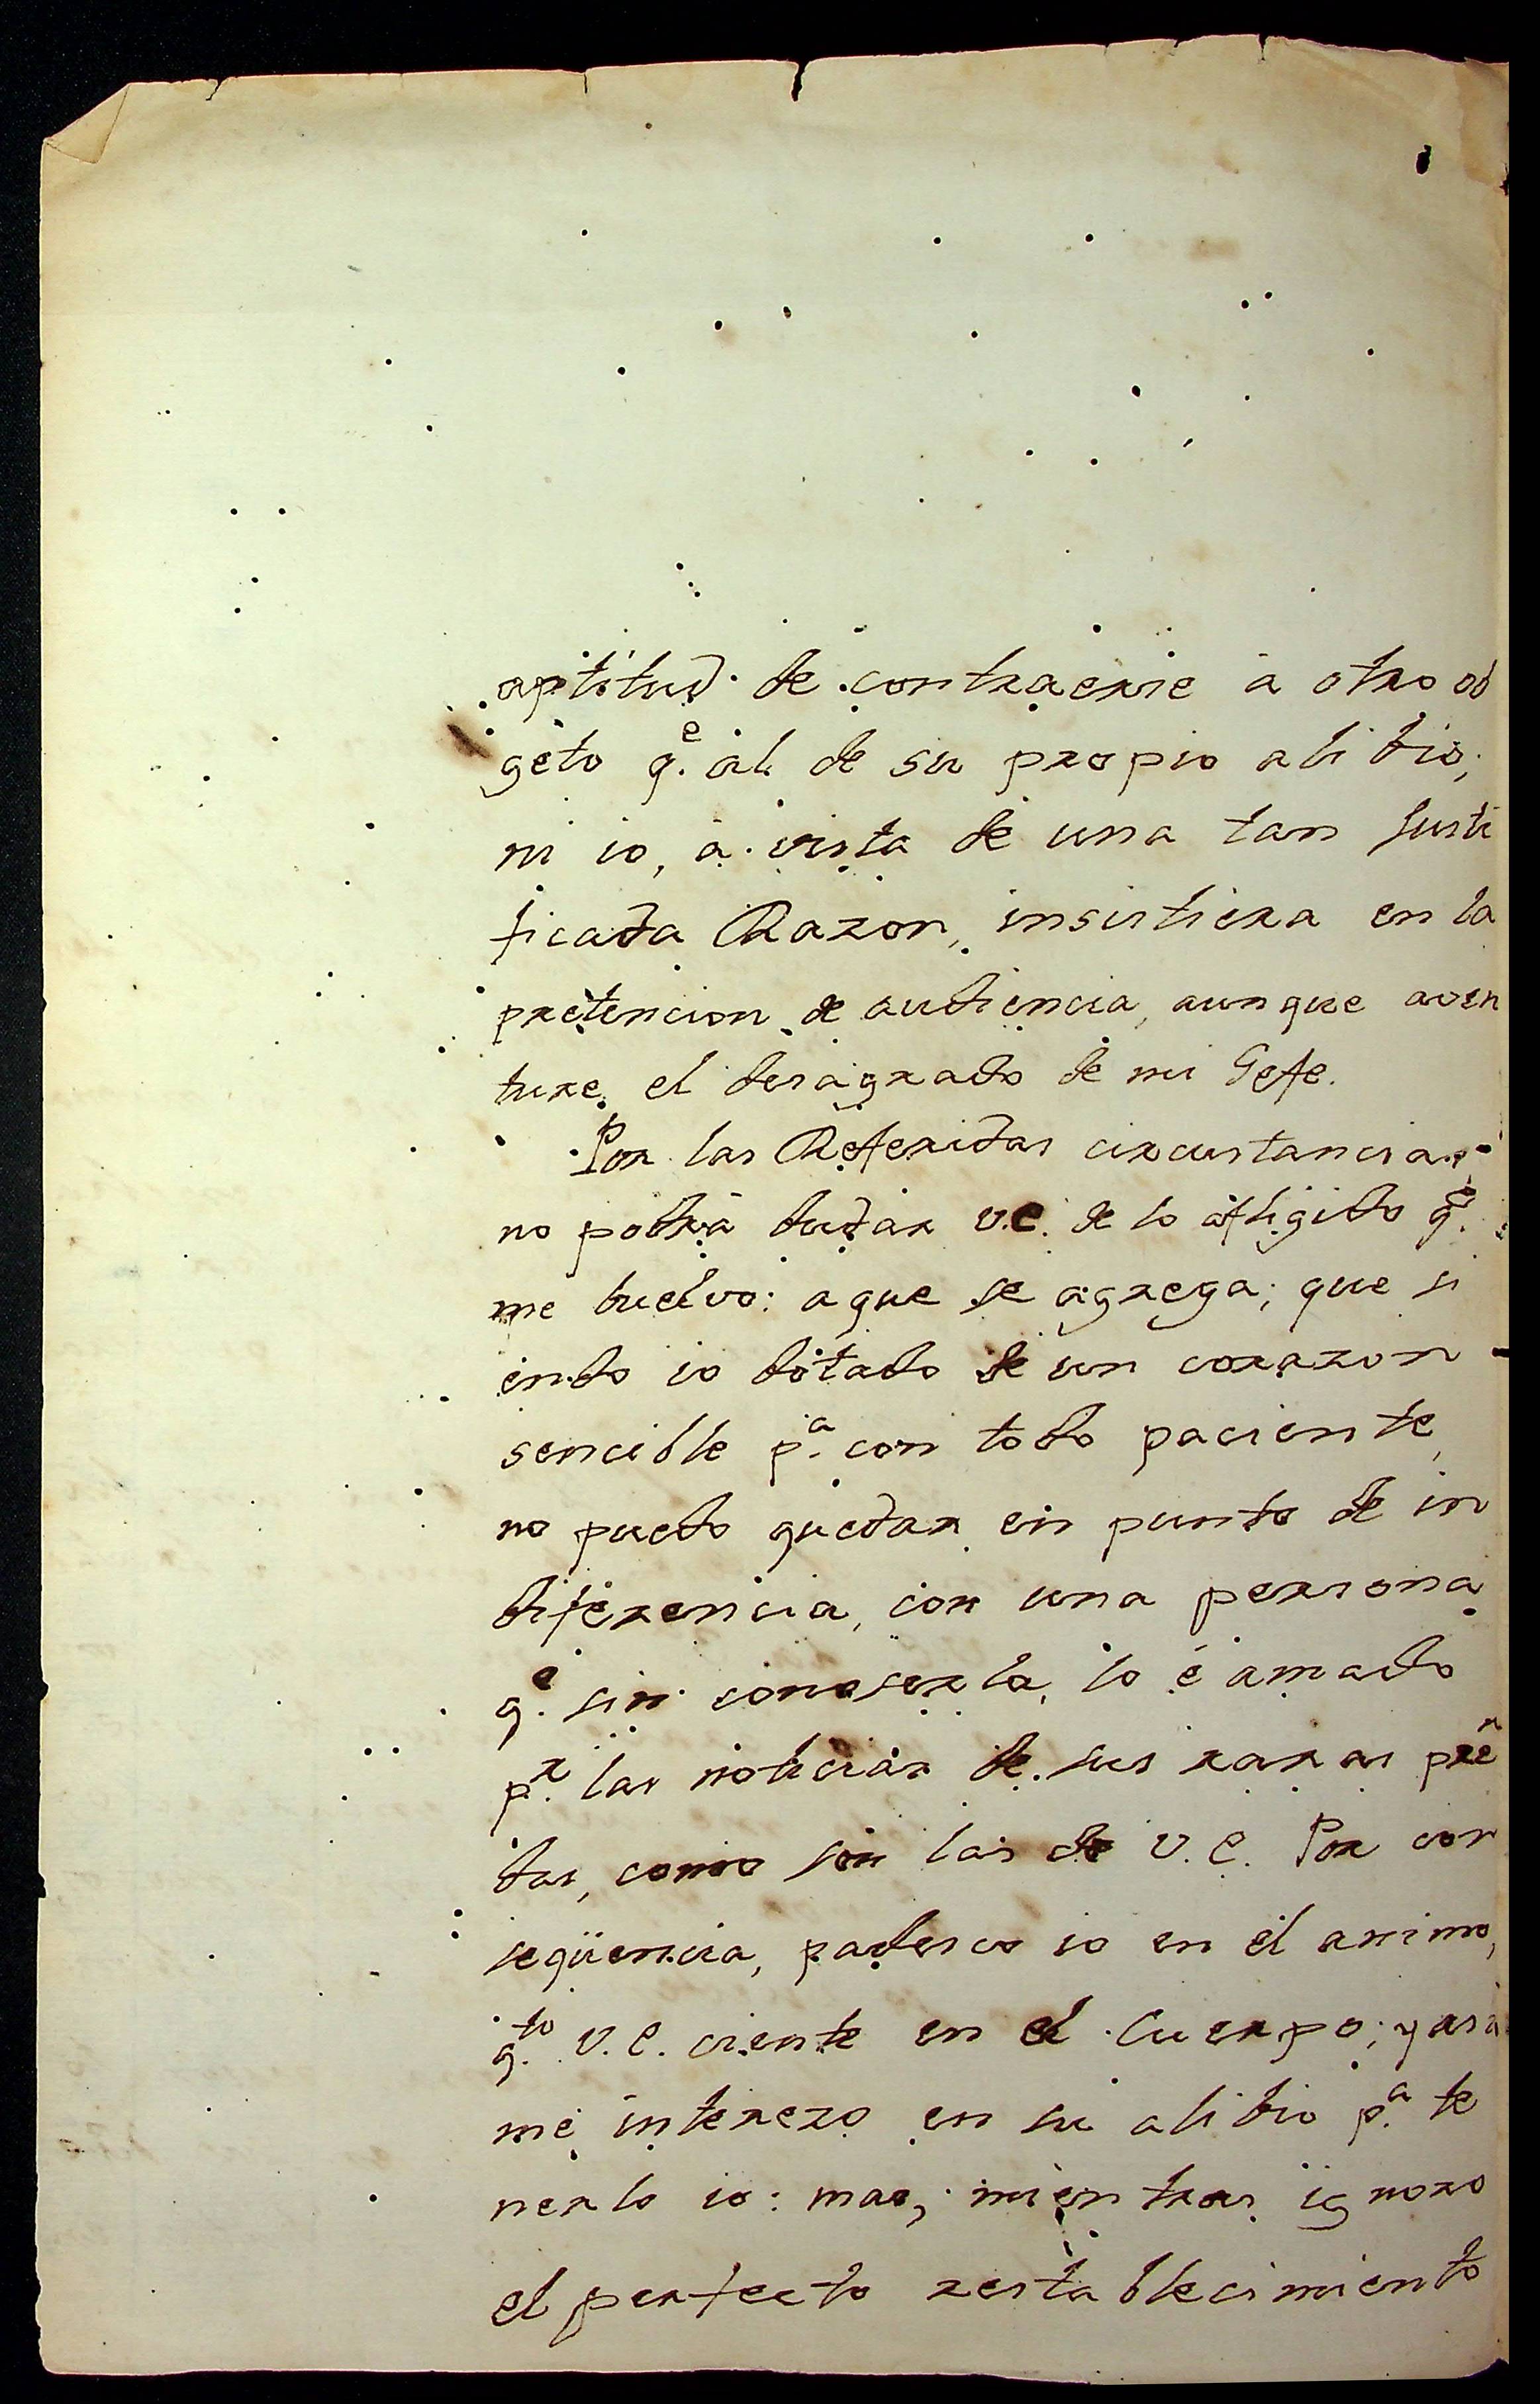 aptitud de contraerse a otro ob
geto q.e al de su propio alibio;
ni io, a vista de una tan Justi
ficada Razon, insistiera en la
pretencion de audiencia, aunque aven
ture el desagrado de mi Gefe.
Por las Referidas circustancias,
no podra dudar V.E. de lo afligido q.e
me buelvo: a que se agrega; que si
endo io dotado de un corazon
sencible p.a con todo paciente,
no puedo quedar en punto de in
diferencia, con una persona
q.e sin conoserla, lo é amado
p.r las noticias de sus raras pren
das, como son las de V.E. Por con
seqüencia, padesco io en el animo,
q.to V.E. ciente en el Cuerpo; y asi
me interezo en su alibio p.a te
nerlo io: mas, mientras ignoro
el perfecto restablecimiento